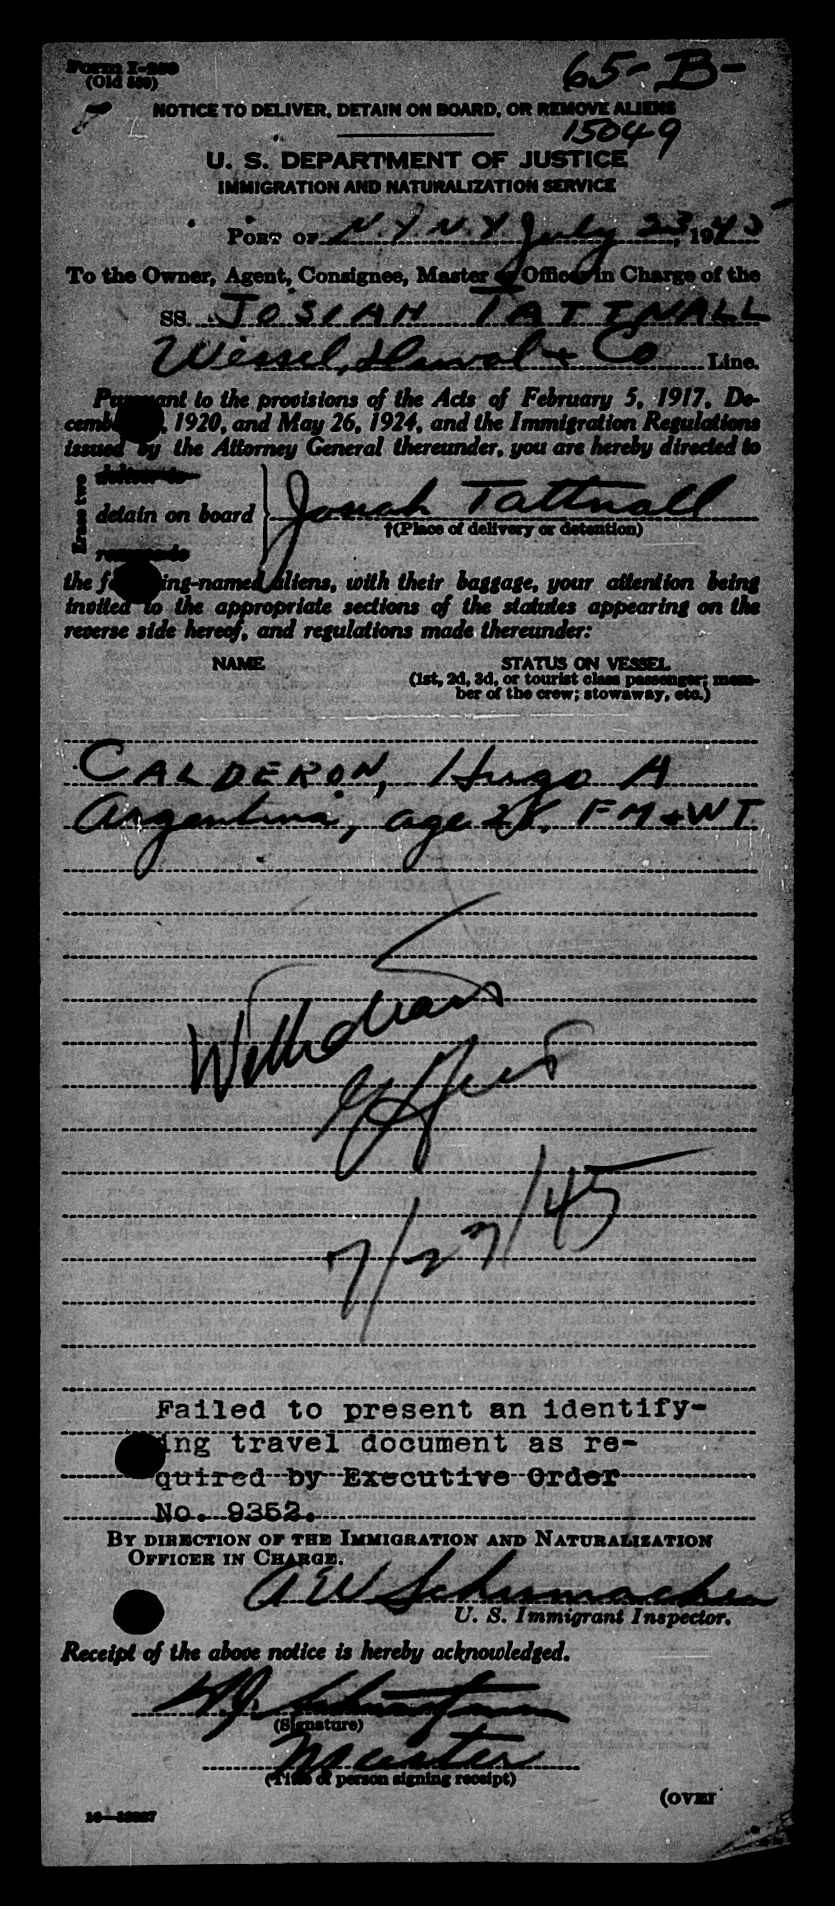 (Old 500)
65-B-
NOTICE TO DELIVER, DETAIN ON BOARD, OR REMOVE ALIENS
15049
U. S. DEPARTMENT OF JUSTICE
IMMIGRATION AND NATURALIZATION SERVICE
PORT OF N.Y. N.Y. July 23, 1945
To the Owner, Agent, Consignee, Master or Officer in Charge of the
SS. JOSIAH TATTNALL
Wessel, Duval & Co Line.
Pursuant to the provisions of the Acts of February 5, 1917, De-
cemb , 1920, and May 26, 1924, and the Immigration Regulations
issued by the Attorney General thereunder, you are hereby directed to
Erase two
deliver to
detain on board
remove to
Josiah Tattnall
†(Place of delivery or detention)
the f ing-named aliens, with their baggage, your attention being
invited to the appropriate sections of the statutes appearing on the
reverse side hereof, and regulations made thereunder:
NAME STATUS ON VESSEL
(1st, 2d, 3d, or tourist class passenger; mem-
ber of the crew; stowaway, etc.)
CALDERON, Hugo A
Argentina, age 28, FM & WT
Withdrawn
7/27/45
Failed to present an identify-
ing travel document as re-
quired by Executive Order
No. 9352.
BY DIRECTION OF THE IMMIGRATION AND NATURALIZATION
OFFICER IN CHARGE.
A W Schumacher
U. S. Immigrant Inspector.
Receipt of the above notice is hereby acknowledged.
(Signature)
Master
(Title of person signing receipt)
(OVER